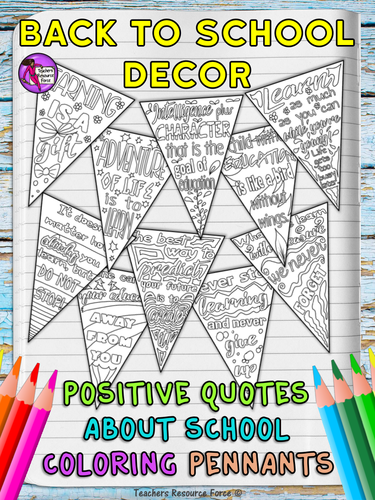 BACK TO SCHOOL
DECOR
Teachers
Resource
Force
IS A
gift
ADVENTURE
OF LIFE
IS TO
LEARN
Intelligence plus
CHARACTER
that is the
goal of
education
Learn
as much
as you can
while you're
young
Life
gets
child without
EDUCATION
is like a bird
without
wings
It does
matter how
slowly you
learn
DO NOT
STOP
AWAY
FROM
YOU
The best
way to
predict
your future
is to
learning
and never
give
up
learn
we never
forget
POSITIVE QUOTES
ABOUT SCHOOL
COLORING PENNANTS
Teachers Resource Force ©